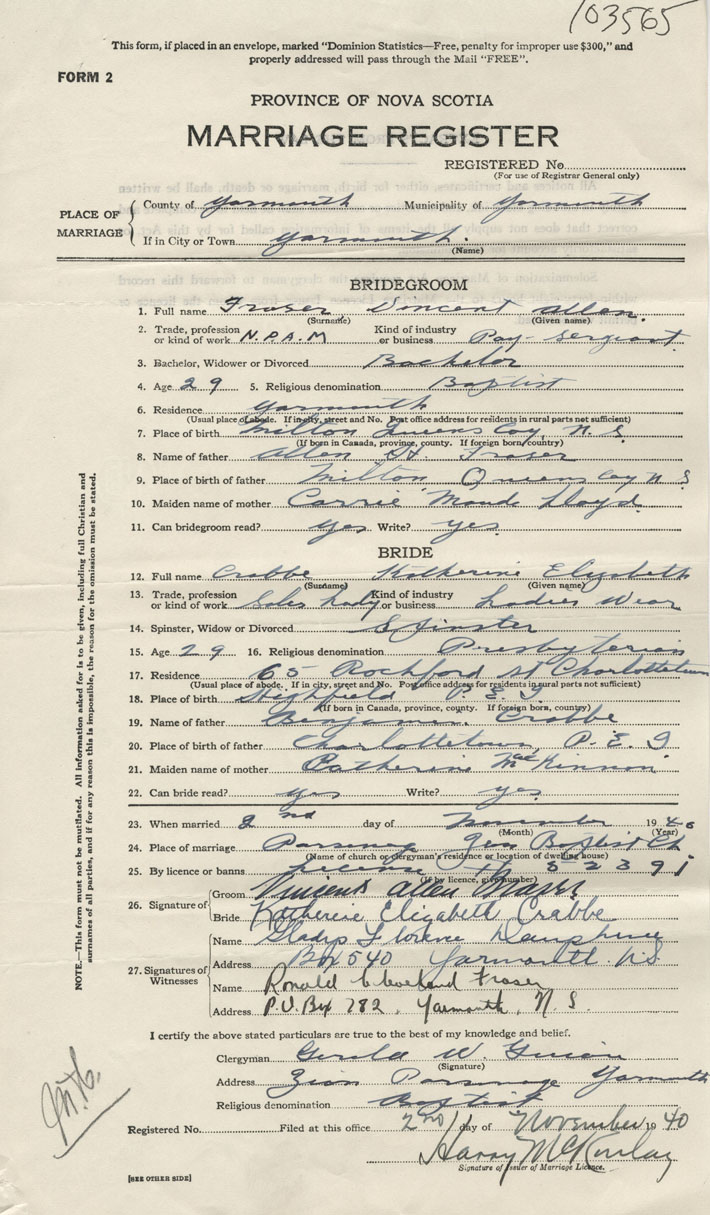 103565
This form, if placed in an envelope, marked "Dominion Statistics—Free, penalty for improper use $300," and
properly addressed will pass through the Mail "FREE".
FORM 2
PROVINCE OF NOVA SCOTIA
MARRIAGE REGISTER
REGISTERED No.
(For use of Registrar General only)
PLACE OF MARRIAGE
County of Yarmouth Municipality of Yarmouth
If in City or Town Yarmouth.
(Name)
BRIDEGROOM
1. Full name Fraser Vincent Allen.
(Surname) (Given name)
2. Trade, profession or kind of work N.P.A.M Kind of industry or business Pay-Sergeant
3. Bachelor, Widower or Divorced Bachelor
4. Age 29 5. Religious denomination Baptist
6. Residence Yarmouth
(Usual place of abode. If in city, street and No. Post office address for residents in rural parts not sufficient)
7. Place of birth Milton Queens Coy, N.S.
(If born in Canada, province, county. If foreign born, country)
8. Name of father Allen H. Fraser
9. Place of birth of father Milton Queens Coy N S
10. Maiden name of mother Carrie Maude Lloyd
11. Can bridegroom read? yes Write? yes
BRIDE
12. Full name Crabbe Katherine Elizabeth
(Surname) (Given name)
13. Trade, profession or kind of work Sales Lady Kind of industry or business Ladies Wear
14. Spinster, Widow or Divorced Spinster
15. Age 29 16. Religious denomination Presbyterian
17. Residence 65 Rochford St Charlottetown
(Usual place of abode. If in city, street and No. Post office address for residents in rural parts not sufficient)
18. Place of birth Highfield P E I
(If born in Canada, province, county. If foreign born, country)
19. Name of father Benjamin Crabbe
20. Place of birth of father Charlottetown, P.E.I
21. Maiden name of mother Catherine MacKinnon
22. Can bride read? yes Write? yes
23. When married 2nd day of November 1940
(Month) (Year)
24. Place of marriage Parsonage Zion Baptist Ch
(Name of church or clergyman's residence or location of dwelling house)
25. By licence or banns License 52391
(If by licence, give number)
26. Signature of Groom Vincent Allen Fraser
Bride Katherine Elizabeth Crabbe
27. Signatures of Witnesses
Name Gladys Florence Dauphinee
Address Box 540 Yarmouth N.S.
Name Ronald Cleveland Fraser
Address P.O. Box 282, Yarmouth, N.S.
I certify the above stated particulars are true to the best of my knowledge and belief.
Clergyman Gerald W. Guiou
(Signature)
Address Zion Parsonage Yarmouth
Religious denomination Baptist
Registered No. Filed at this office 2nd day of November 1940
Harry McKinlay
Signature of Issuer of Marriage Licence.
[SEE OTHER SIDE]
NOTE.—This form must not be mutilated. All information asked for is to be given, including full Christian and
surnames of all parties, and if for any reason this is impossible, the reason for the omission must be stated.